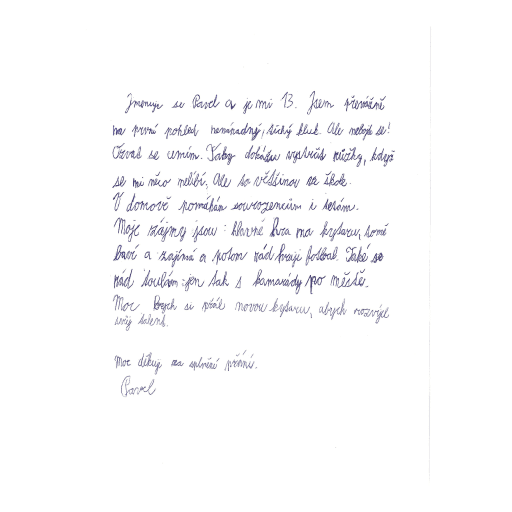 Jmenuje se Pavel a je mi 13. Jsem převážně
na první pohled nenápadný, tichý kluk. Ale nebojte se!
Ozvat se umím. Taky dokážu vystrčit růžky, když
se mi něco nelíbí. Ale to většinou ve škole.
V domově pomáhám sourozencům i tetám.
Moje zájmy jsou: hlavně hra na kytaru, to mě
baví a zajímá a potom rád hraji fotbal. Také se
rád toulám jen tak s kamarády po městě.
Moc bych si přál novou kytaru, abych rozvíjel
svůj talent.
Moc děkuji za splnění přání.
Pavel